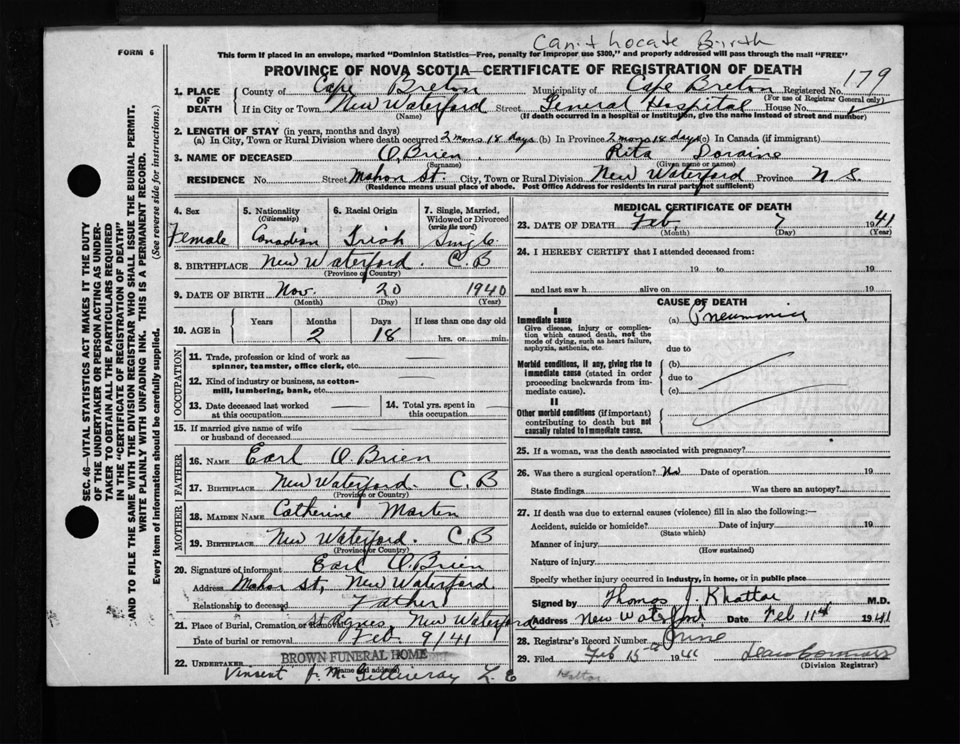 Can't Locate Birth
FORM 6
This form if placed in an envelope, marked "Dominion Statistics—Free, penalty for improper use $300," and properly addressed will pass through the mail "FREE"
PROVINCE OF NOVA SCOTIA—CERTIFICATE OF REGISTRATION OF DEATH
179
1. PLACE OF DEATH
County of Cape Breton Municipality of Cape Breton Registered No.
(For use of Registrar General only)
If in City or Town New Waterford Street General Hospital House No.
(Name) (If death occurred in a hospital or institution, give the name instead of street and number)
2. LENGTH OF STAY (in years, months and days)
(a) In City, Town or Rural Division where death occurred 2 mons 18 days (b) In Province 2 mons 18 days (c) In Canada (if immigrant)
3. NAME OF DECEASED O'Brien Rita Loraine
(Surname) (Given name or names)
RESIDENCE No. Street Mahon St. City, Town or Rural Division New Waterford Province N S.
(Residence means usual place of abode. Post Office Address for residents in rural party not sufficient)
4. Sex 5. Nationality (Citizenship) 6. Racial Origin 7. Single, Married, Widowed or Divorced (write the word)
Female Canadian Irish Single
8. BIRTHPLACE New Waterford. C.B
(Province or Country)
9. DATE OF BIRTH Nov. 20 1940
(Month) (Day) (Year)
10. AGE in Years Months Days If less than one day old
2 18 hrs. or min.
OCCUPATION
11. Trade, profession or kind of work as spinner, teamster, office clerk, etc.
12. Kind of industry or business, as cotton-mill, lumbering, bank, etc.
13. Date deceased last worked at this occupation
14. Total yrs. spent in this occupation
15. If married give name of wife or husband of deceased
FATHER
16. NAME Earl O'Brien
17. BIRTHPLACE New Waterford. C.B
(Province or Country)
MOTHER
18. MAIDEN NAME Catherine Martin
19. BIRTHPLACE New Waterford. C.B
(Province or Country)
20. Signature of informant Earl O'Brien
Address Mahon St, New Waterford
Relationship to deceased Father
21. Place of Burial, Cremation or Removal St Agnes, New Waterford
Date of burial or removal Feb. 9/41
22. UNDERTAKER BROWN FUNERAL HOME
(Name and address)
Vincent J. Mc
MEDICAL CERTIFICATE OF DEATH
23. DATE OF DEATH Feb. 7 1941
(Month) (Day) (Year)
24. I HEREBY CERTIFY that I attended deceased from:
19 to 19
and last saw h alive on 19
CAUSE OF DEATH
I
Immediate cause (a) Pneumonia
Give disease, injury or complication which caused death, not the mode of dying, such as heart failure, asphyxia, asthenia, etc.
due to
Morbid conditions, if any, giving rise to immediate cause (stated in order proceeding backwards from immediate cause).
(b)
due to
(c)
II
Other morbid conditions (if important) contributing to death but not causally related to immediate cause.
25. If a woman, was the death associated with pregnancy?
26. Was there a surgical operation? No Date of operation 19
State findings Was there an autopsy?
27. If death was due to external causes (violence) fill in also the following:—
Accident, suicide or homicide? Date of injury 19
(State which)
Manner of injury
(How sustained)
Nature of injury
Specify whether injury occurred in industry, in home, or in public place
Signed by Thomas J. Khattar M.D.
Address New Waterford. Date Feb 11th 1941
28. Registrar's Record Number Nine
29. Filed Feb 15th 1941
(Division Registrar)
SEC. 46—VITAL STATISTICS ACT MAKES IT THE DUTY
OF THE UNDERTAKER OR PERSON ACTING AS UNDERTAKER TO OBTAIN ALL THE PARTICULARS REQUIRED
IN THE "CERTIFICATE OF REGISTRATION OF DEATH"
AND TO FILE THE SAME WITH THE DIVISION REGISTRAR WHO SHALL ISSUE THE BURIAL PERMIT.
WRITE PLAINLY WITH UNFADING INK. THIS IS A PERMANENT RECORD.
Every item of information should be carefully supplied. (See reverse side for instructions.)